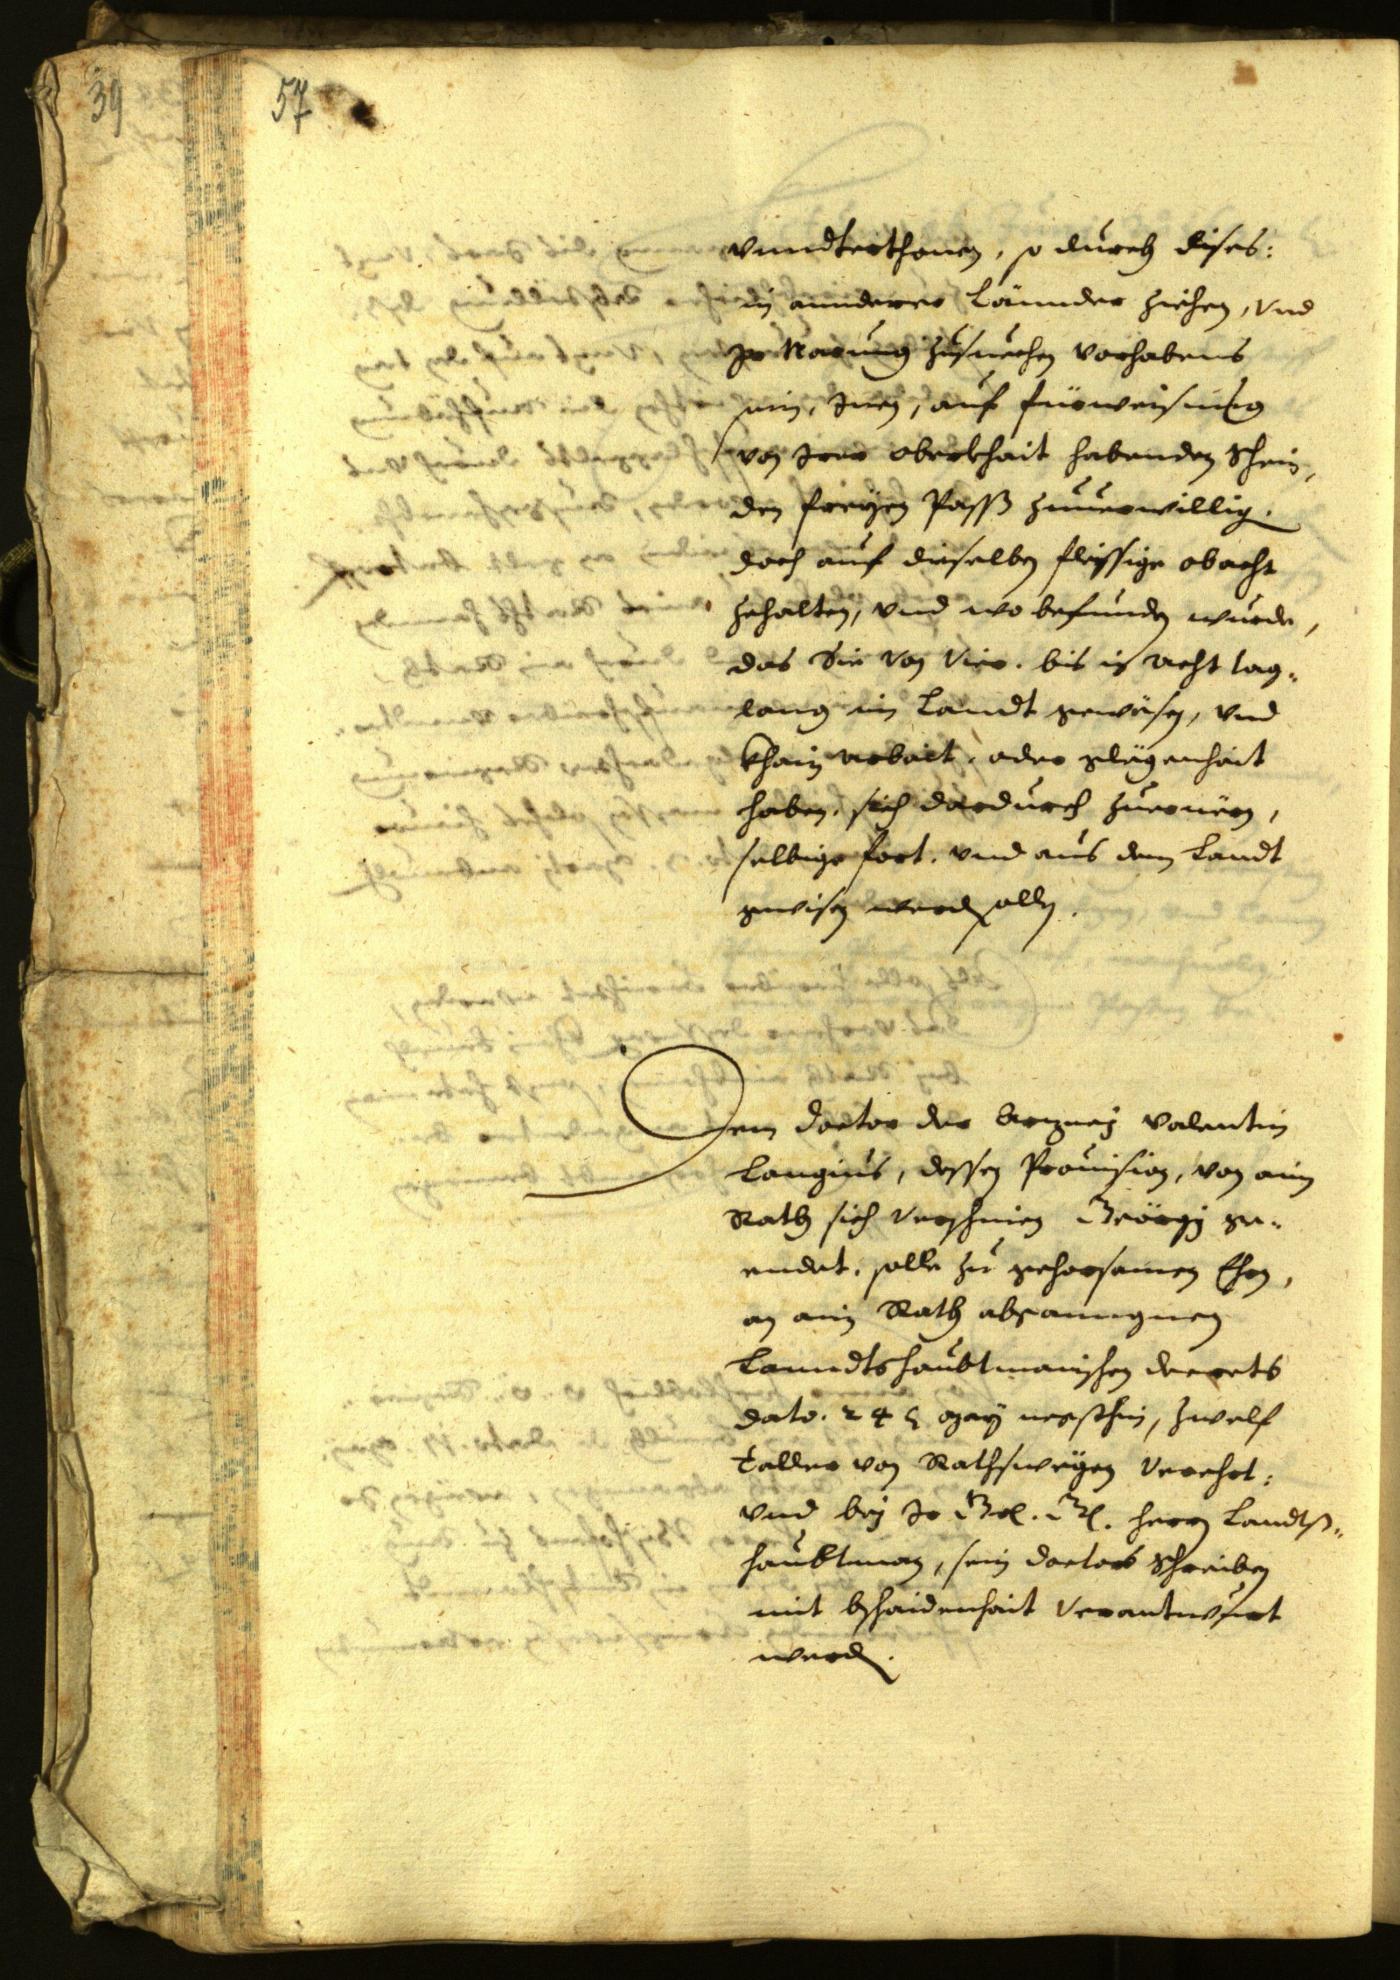 39
57
vnndterthonen, so durch dises:
in annderer Lännder ziehen, vnd
Jr Narung zusuechen vorhabens
sein, Jnen, auf fürweisung
von Jrer oberkhait habenden Schein,
den freyen Passß zuuerwillig.
doch auf dieselben fleissige obacht
zehalten, vnd wo befunden wurde,
das Sie von vier. bis in acht tag„
lang im Landt gewesen, vnd
khain arbait. oder glegenhait
haben, sich dardurch zuernern,
selbige fort. vnd aus dem Landt
gewisen werden sollen.
Dem doctor der Arzney Valentin
Langius, dessen Prouision, von ain
Rath sich verschinen Geörgij ge„
endet, solle zu gehorsamen Ehrn,
an ain Rath abganngnen
Lanndtshaubtmanischen decrets
dato. 24 May verschin, zwelf
Taller von Rathswegen verehrt:
vnd bey Jr Gst. Gl. herrn Landtß„
haubtman, sein doctors schreiben
mit bschaidenhait verantwurt
werden.